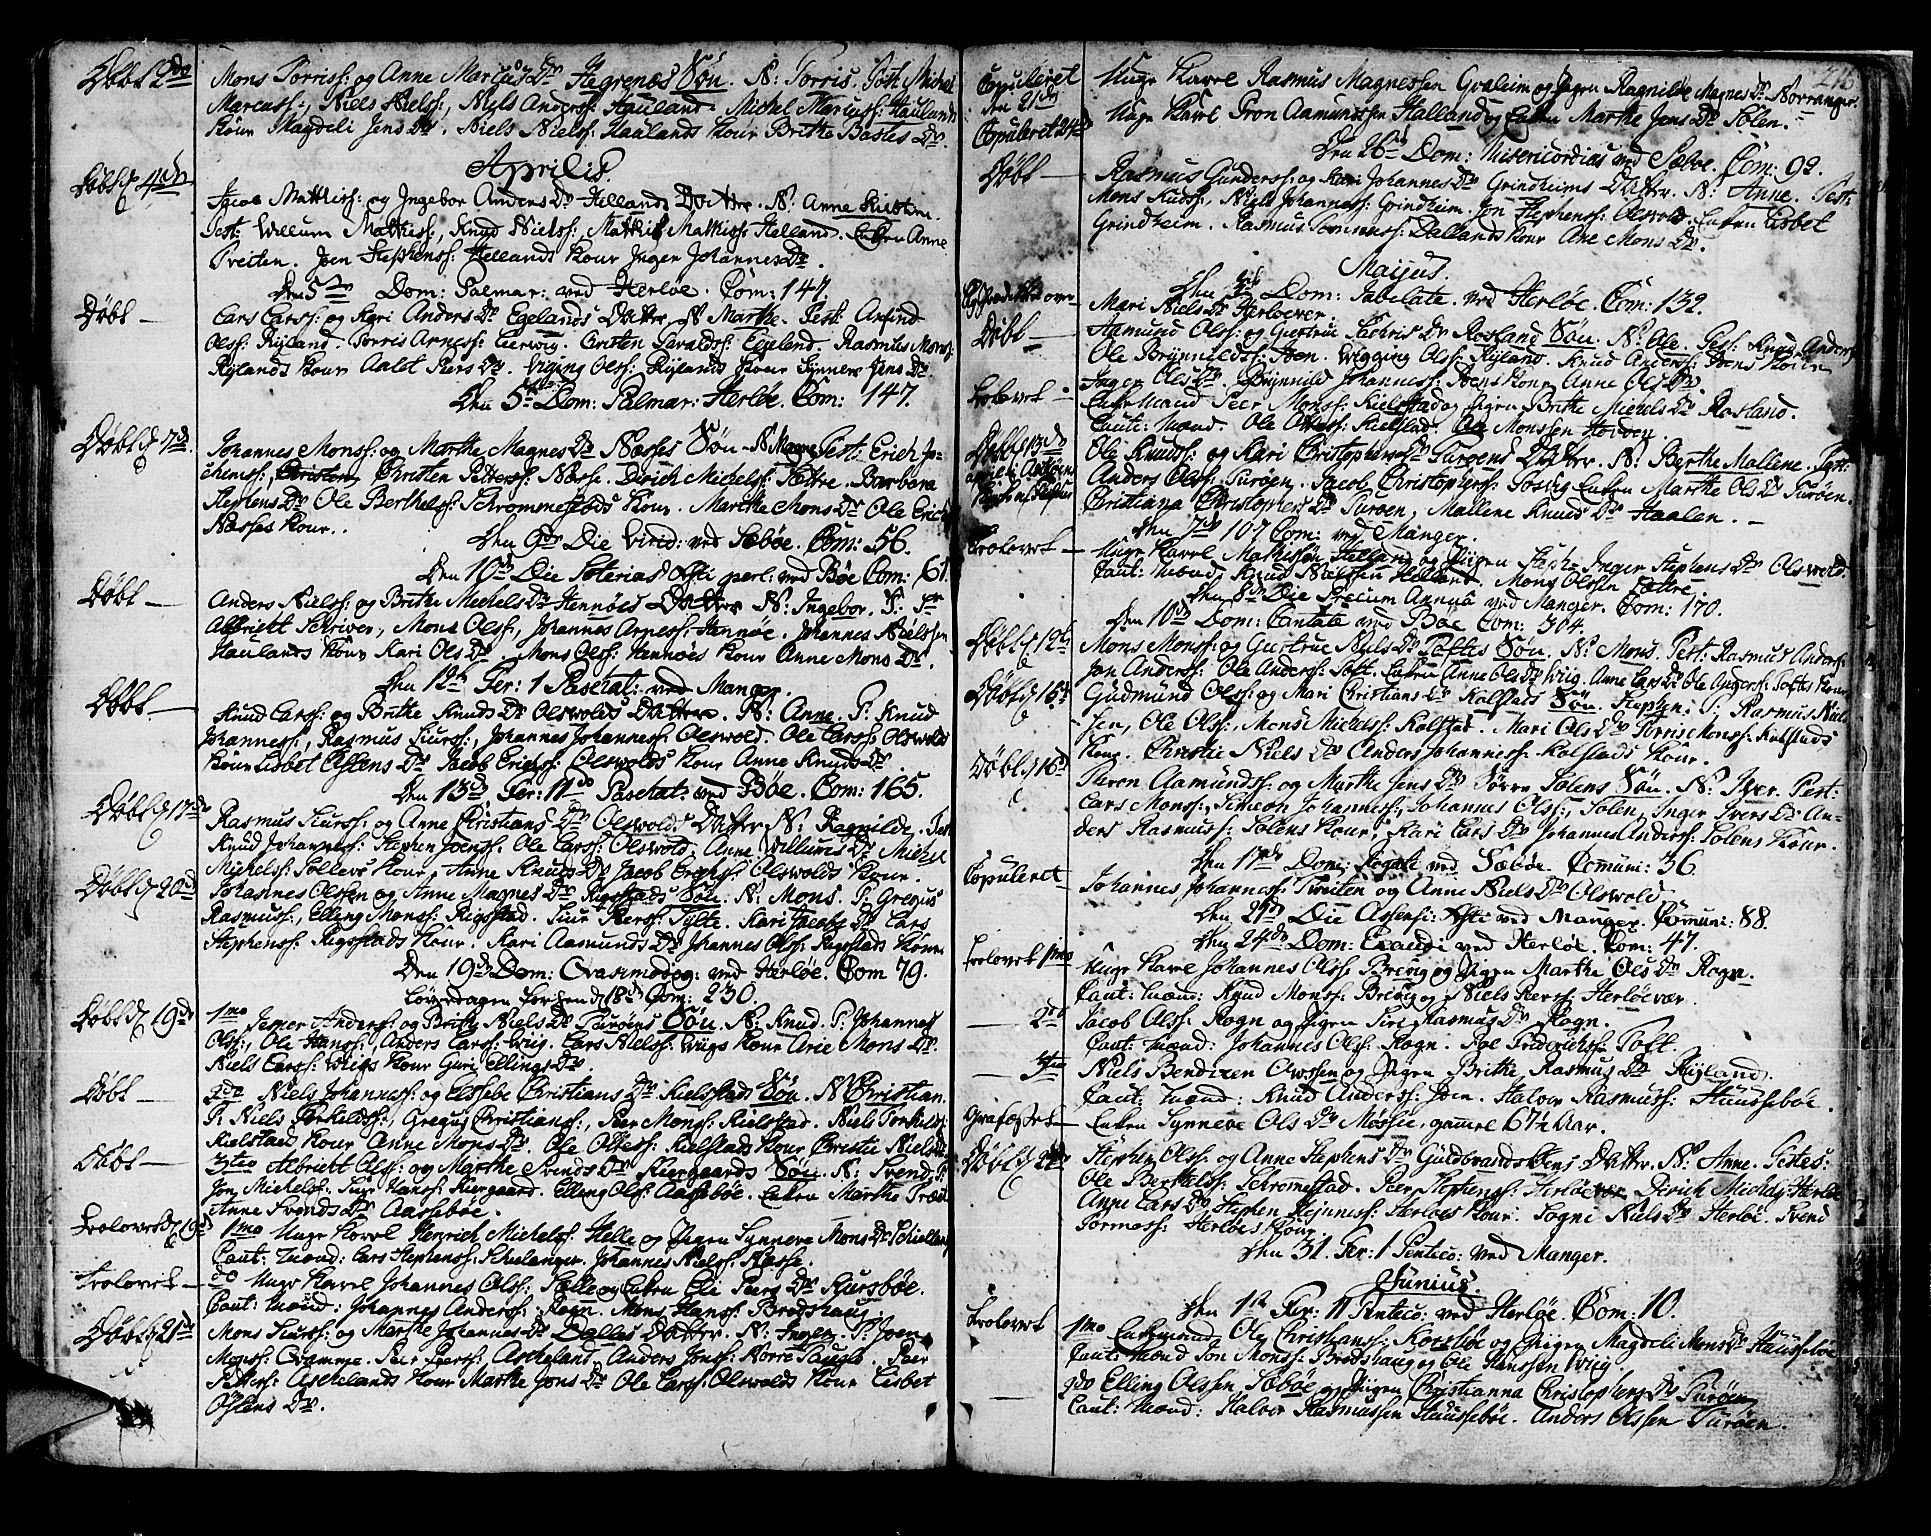 Döbt 2do Mons Torriss: og Anne Marcus Dr Hegrenæs Sön. N: Torris. Test: Michel
Marcuss:, Niels Nielss:, Niels Anderss: Hauland. Michel Marcuss: Haulands
Kone Magdeli Jens Dr. Niels Nielss: Haulands Kone Brithe Bastes Dr.
Aprilis.
Döbt d 4de Jacob Matthiss: og Ingebor Anders Dr Hellands Datter. N: Anne
Test: Willum Mathiess, Knud Nielss:, Mathis Mathiss: Helland. Enken Anne
Treiten. Joen Stephenss: Hellands Kone Inger Johannes Dr.
Den 5te Dom: Palmar: ved Herlöe. Com: 147
Döbt — Lars Larss: og Kari Anders Dr Egelands Datter N Marthe. Test:
Olss: Rijland. Torris Arness: Leervig. Carsten Haraldss: Egeland. Rasmus Monss:
Rijlands Kone Aalet Pers Dr. Viging Olss: Rijlands Kone Synneve Jens Dr.
Den 5te Dom: Palmar: Herlöe. Com: 147.
Döbt d 7de Johannes Monss: og Marthe Magnes Dr Næsses Sön N Magne Test: Erich Jo-
chimss:, Christen Petterss: Næsse. Dirich Michelss: Sættre. Barbara
Stephens Dr Ole Berthelss: Schrommestads Kone. Marthe Mons Dr Ole Erichs
Næsses Kone.
Den 9de Die Virid: ved Sæböe. Com: 56.
Den 10de Die Soterias Xsti perl: ved Böe Com: 161.
Döbt — Anders Nielss: og Brithe Michels Dr Hennöes Datter N: Ingebor. T: Sr
Albriett Schriver, Mons Olss:, Johannes Arness: Hennöe. Johannes Nielssen
Haulands Kone Kari Ols Dr. Mons Olss: Hennöes Kone Anne Mons Dr.
Den 12te Fer: 1 Paschat: ved Manger.
Döbt — Knud Larss: og Brithe Knuds Dr Olswolds Datter. N: Anne. T: Knud
Johanness:, Rasmus Siurss:, Johannes Johanness: Olswold. Ole Larss: Olswolds
Kone Lisbet Östens Dr. Jacob Erichss: Olswolds Kone Anne Knuds Dr.
Den 13de Fer: 11 Paschat: ved Böe. Com: 165.
Döbt d 17de Rasmus Siurss: og Anne Christians Dr Olswolds Datter N: Ragnilde. Test
Knud Johanness: Stephen Joenss: Ole Larss: Olswold. Anne Willums Dr Michel
Michelss: Kone, Anne Knuds Dr Jacob Erichss: Olswolds Kone.
Döbt d 20de Johannes Olssen og Anne Magnes Dr Rigstads Sön. N: Mons. T: Gregus
Rasmuss:, Elling Monss: Rigstad. Siur Perss: Kari Jacobs Dr Lars
Stephenss: Rigstads Kone. Kari Aamunds Dr Johannes Olss: Rigstads Kone
Den 19de Dom: Qvasimodog: ved Herlöe. Com 79.
Löverdagen for hen d 18de Com: 230.
Döbt d 19de 1mo Jemer Anderss: og Brithe Niels Dr Turöens Sön. N: Knud. T: Johannes
Olss:, Ole Hanss: Anders Larss: Wiig. Lars Nielss: Wiigs Kone Arie Mons Dr.
Niels Larss: Wiigs Kone Guri Ellings Dr.
Döbt — 2do Niels Johanness: og Elsebe Christians Dr Kielstads Sön. N Christian.
T: Niels Torkeldss:, Gregus Christianss:, Peer Monss: Kielstad. Niels Torkilds:
Kielstads Kone Anne Mons Dr. Ole Olless: Kielstads Kone Christie Niels Dr
Döbt — 3tio Albriett Olss: og Marthe Svends Dr Kiergaards Sön. N: Svend. T:
Jon Michelss: Siur Hanss: Kiergaard. Elling Olss: Aasseböe. Enken Marthe
Anne Svends Dr Aasseböe.
Trolovede d 19de 1mo Unge Karl Henrich Michelss: Helle og Pigen Synneve Mons Dr Schiellanger
Caut: Mænd: Lars Stephenss: Schielanger. Johannes Nielss: Næsse.
Trolovet — 2do Unge Karel Johannes Olss: Sælle og Enken Eli Peers Dr Kursböe.
Caut: Mænd: Johannes Anderss: Rogn. Mons Hanss: Brodshaug.
Döbt d 21de Mons Siurss: og Marthe Johannes Dr Dalles Datter. N: Inger. T: Joen
Monss: Qvamme. Peer Peerss: Ascheland. Anders Jonss: Norre Peer
Petterss: Aschelands Kone Marthe Jens Dr Ole Larss: Olswolds Kone Lisbet
Östens Dr.
Copuleret den 21de Unge Karl Rasmus Magnessen Qvaleim og Pigen Ragnilde Magnes Dr Norranger.
Copuleret 24de Unge Karl Tron Aamundssen Halland og Enken Marthe Jens Dr Solen.
Den 26de Dom: Misericordias ved Sæboe. Com: 92.
Döbt — Rasmus Gunderss: og Kari Johannes Dr Grindheims Datter. N: Anne. Test:
Mons Kudss:, Niels Johanness: Grindheim. Jon Stephenss: Olswold. Enken Lisbet
Grindheim. Rasmus Dallands Kone Ane Mons Dr.
Maijus.
Den 3de Dom: Jubelate. ved Herlöe. Com: 132.
Mari Niels Dr Herloever.
Döbt — Aamund Olss: og Giertrue Rosland Sön. N: Ole. Test: Knud Anderss
Ole Brynnieldss: Joen. Wigging Olss: Rijland. Knud Anderss: Joens Kone
Inger Ols Dr. Brynnild Johanness: Joens Kone Anne Ols Dr.
Trolovet — Enkemand Peer Monss: Kielstad og Pigen Brithe Michels Dr Rosland.
Caut: Mænd. Ole Olless: Kielstad. Ole Monssen Horden.
Döbt d 13de Ole Knudss: og Kari Christophers Dr Turöens Datter. N: Berthe Mallene. Test:
Anders Olss: Turöen. Jacob Christopherss: Enken Marthe Ols Dr Turöen.
Christiana Christophers Dr Turöen, Mallene Knuds Dr Haalen. —
Den 7de 107 Com: ved Manger.
Trolovet — Unge Karel Mathissen Helland og Pigen Inger Stephens Dr Olswold.
Caut: Mænd. Knud Nielssen Helland. Mons Olssen Sættre.
Den 8de Die Precum Annua ved Manger. Com: 170.
Den 10de Dom: Cantate ved Böe Com: 304.
Döbt d 12te Mons Monss: og Giertrue Niels Dr Tofties Sön. N: Mons. Test: Rasmus Anderss:
Jon Anderss: Ole Anderss: Toft. Enken Anne Ols Dr Wiig. Anne Lars Dr Ole Anderss: Tofts Kone
Döbt d 16de Gudmund Olss: og Mari Christians Dr Kolstads Sön. Stephen: T: Rasmus Niel-
sen, Ole Olss:, Mons Michelss: Kolstad. Mari Ols Dr Torris Monss: Kolstads
Kone. Christie Niels Dr Anders Johanness: Kolstads Kone.
Döbt d 16de Turon Aamundss: og Marthe Jens Dr Nörre Solens Sön. N: Iver. Test:
Lars Monss:, Simeon Johanness:, Johannes Olss: Solen, Inger Ivers Dr An-
ders Rasmuss: Solens Kone, Kari Lars Dr Johannes Anderss: Solens Kone.
Den 17de Dom: Rogate ved Sæböe. Comuni: 36.
Copuleret — Johannes Johanness: Treiten og Anne Niels Dr Olswold
Den 21de Die Assensi: Xsti ved Manger. Comuni: 88.
Den 24de Dom: Exaudi ved Herlöe. Com: 47.
Trolovet 1mo Unge Karel Johannes Olss: Breivig og Pigen Marthe Ols Dr Rogn.
Caut: Mænd: Knud Monss: Breivig og Niels Peerss: Herlöevær.
— 2do Jacob Alss: Rogn og Pigen Siri Rasmus Dr Rogn.
Caut: Mænd: Johannes Olss: Rogn. Poe Friderichss: Toft.
— 3tio Niels Bendixen Owssen og Pigen Brithe Rasmus Dr Rijland.
Caut: Mænd: Knud Anderss: Joen. Halvor Rasmuss: Huusseböe.
Grafæstet — Enken Synneve Ols Dr Møssie, gamle 67½ Aar.
Döbt d Stephen Olss: og Anne Stephens Dr Guldbrandsöens Datter. N: Anne. Testes:
Ole Berthelss: Schromestad. Peer Stephenss: Herlöever. Dirich Michelss: Herlöe
Anne Lars Dr Stephen Herloes Kone. Sogni Niels Dr Herlöe. Svend
Tormoss: Herlöes Kone
Den 31. Fer: 1 Pentico: ved Manger.
Junius.
Den 1ste Fer: 11 Pentico: ved Herlöe. Com: 10.
Trolovet 1mo Enkemand Ole Christianss: Korsböe og Pigen Magdeli Mons Dr Huusseböe
Caut: Mænd Jon Monss: Brodshaug og Ole Hanssen Wiig
— 2do Elling Olssen Sæböe og Pigen Christianna Christophers Dr Turöen
Caut: Mænd: Halvor Rasmussen Huusseböe. Anders Olssen Turöen.